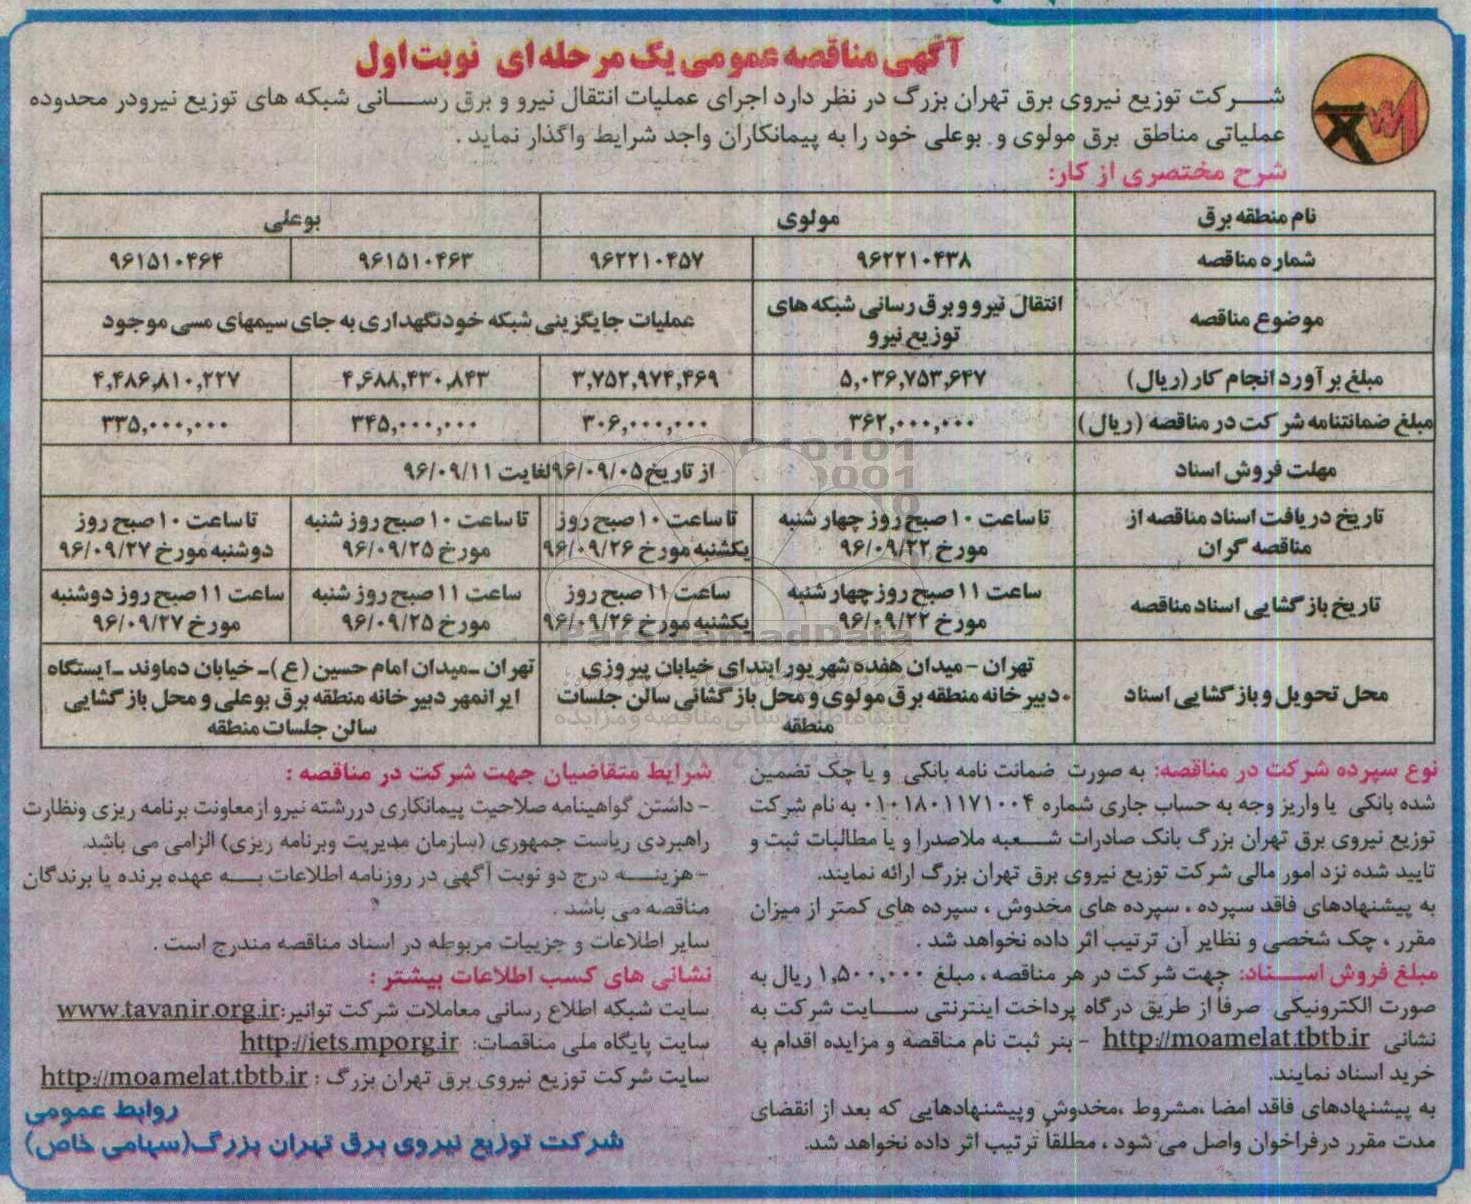 آگهی مناقصه عمومی یک مرحله ای نوبت اول
شرکت توزیع نیروی برق تهران بزرگ در نظر دارد اجرای عملیات انتقال نیرو و برق رسانی شبکه های توزیع نیرودر محدوده
عملیاتی مناطق برق مولوی و بوعلی خود را به پیمانکاران واجد شرایط واگذار نماید .
شرح مختصری از کار:
نام منطقه برق مولوی بوعلی
شماره مناقصه ۹۶۲۲۱۰۴۳۸ ۹۶۲۲۱۰۴۵۷ ۹۶۱۵۱۰۴۶۳ ۹۶۱۵۱۰۴۶۴
موضوع مناقصه انتقال نیرو و برق رسانی شبکه های توزیع نیرو عملیات جایگزینی شبکه خودنگهداری به جای سیمهای مسی موجود
مبلغ برآورد انجام کار (ریال) ۵,۰۳۶,۷۵۳,۶۴۷ ۳,۷۵۲,۹۷۴,۴۶۹ ۴,۶۸۸,۴۳۰,۸۴۳ ۴,۴۸۶,۸۱۰,۲۲۷
مبلغ ضمانتنامه شرکت در مناقصه (ریال) ۳۶۲,۰۰۰,۰۰۰ ۳۰۶,۰۰۰,۰۰۰ ۳۴۵,۰۰۰,۰۰۰ ۳۳۵,۰۰۰,۰۰۰
مهلت فروش اسناد از تاریخ ۹۶/۰۹/۰۵ لغایت ۹۶/۰۹/۱۱
تاریخ دریافت اسناد مناقصه از مناقصه گران تا ساعت ۱۰ صبح روز چهارشنبه مورخ ۹۶/۰۹/۲۲ تا ساعت ۱۰ صبح روز یکشنبه مورخ ۹۶/۰۹/۲۶ تا ساعت ۱۰ صبح روز شنبه مورخ ۹۶/۰۹/۲۵ تا ساعت ۱۰ صبح روز دوشنبه مورخ ۹۶/۰۹/۲۷
تاریخ بازگشایی اسناد مناقصه ساعت ۱۱ صبح روز چهارشنبه مورخ ۹۶/۰۹/۲۲ ساعت ۱۱ صبح روز یکشنبه مورخ ۹۶/۰۹/۲۶ ساعت ۱۱ صبح روز شنبه مورخ ۹۶/۰۹/۲۵ ساعت ۱۱ صبح روز دوشنبه مورخ ۹۶/۰۹/۲۷
محل تحویل و بازگشایی اسناد تهران - میدان هفده شهریور ابتدای خیابان پیروزی • دبیرخانه منطقه برق مولوی و محل بازگشائی سالن جلسات منطقه تهران -میدان امام حسین (ع)- خیابان دماوند -ایستگاه ایرانمهر دبیرخانه منطقه برق بوعلی و محل بازگشایی سالن جلسات منطقه
نوع سپرده شرکت در مناقصه: به صورت ضمانت نامه بانکی و یا چک تضمین
شده بانکی یا واریز وجه به حساب جاری شماره ۰۱۰۱۸۰۱۱۷۱۰۰۴ به نام شرکت
توزیع نیروی برق تهران بزرگ بانک صادرات شعبه ملاصدرا و یا مطالبات ثبت و
تایید شده نزد امور مالی شرکت توزیع نیروی برق تهران بزرگ ارائه نمایند.
به پیشنهادهای فاقد سپرده ، سپرده های مخدوش ، سپرده های کمتر از میزان
مقرر ، چک شخصی و نظایر آن ترتیب اثر داده نخواهد شد .
مبلغ فروش اسناد: جهت شرکت در هر مناقصه ، مبلغ ۱,۵۰۰,۰۰۰ ریال به
صورت الکترونیکی صرفا از طریق درگاه پرداخت اینترنتی سایت شرکت به
نشانی http://moamelat.tbtb.ir - بنر ثبت نام مناقصه و مزایده اقدام به
خرید اسناد نمایند.
به پیشنهادهای فاقد امضا ،مشروط ،مخدوش وپیشنهادهایی که بعد از انقضای
مدت مقرر درفراخوان واصل می شود ، مطلقاً ترتیب اثر داده نخواهد شد.
شرایط متقاضیان جهت شرکت در مناقصه :
- داشتن گواهینامه صلاحیت پیمانکاری دررشته نیرو ازمعاونت برنامه ریزی ونظارت
راهبردی ریاست جمهوری (سازمان مدیریت وبرنامه ریزی) الزامی می باشد.
-هزینه درج دو نوبت آگهی در روزنامه اطلاعات به عهده برنده یا برندگان
مناقصه می باشد .
سایر اطلاعات و جزییات مربوطه در اسناد مناقصه مندرج است .
نشانی های کسب اطلاعات بیشتر :
سایت شبکه اطلاع رسانی معاملات شرکت توانیر:www.tavanir.org.ir
سایت پایگاه ملی مناقصات: http://iets.mporg.ir
سایت شرکت توزیع نیروی برق تهران بزرگ : http://moamelat.tbtb.ir
روابط عمومی
شرکت توزیع نیروی برق تهران بزرگ(سهامی خاص)
ParsNamadData
پایگاه اطلاع رسانی مناقصه و مزایده